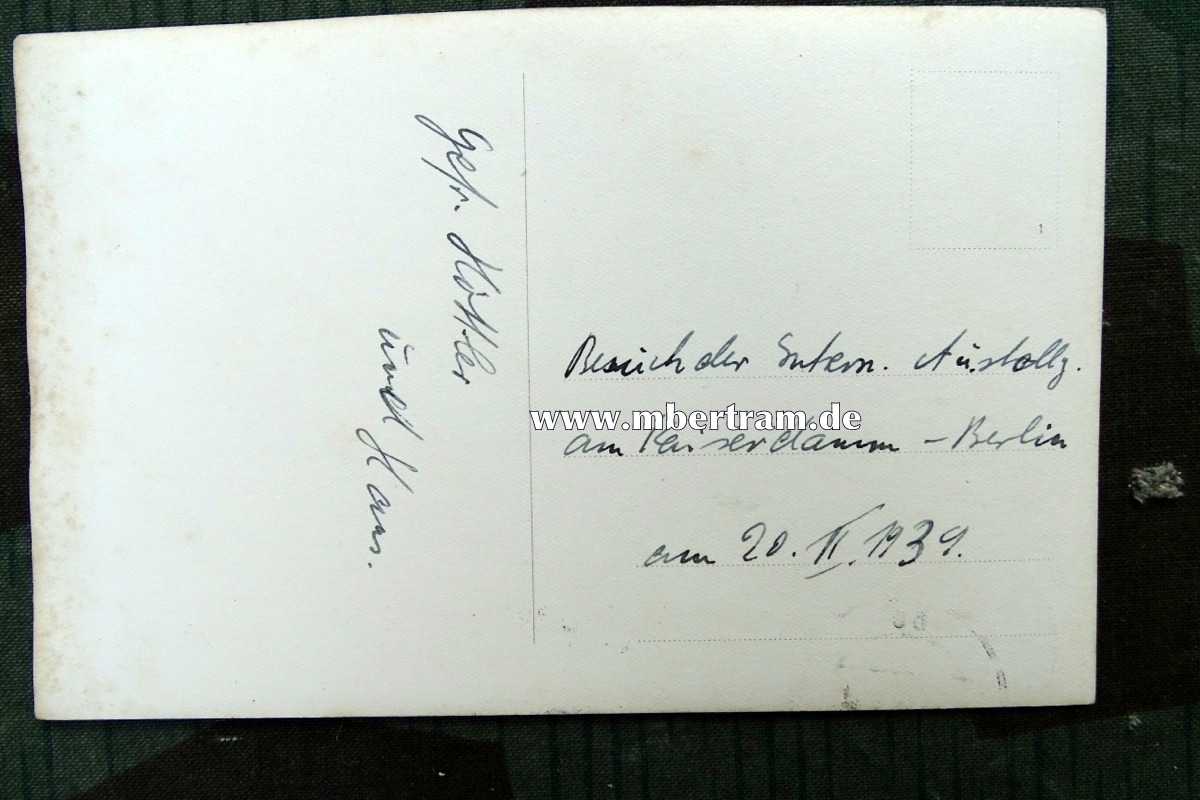 Gefr. Köttler
und Hans.
Besuch der Intern. Austellg.
www.mbertram.de
am Kaiserdamm - Berlin
am 20. II. 1939.
1